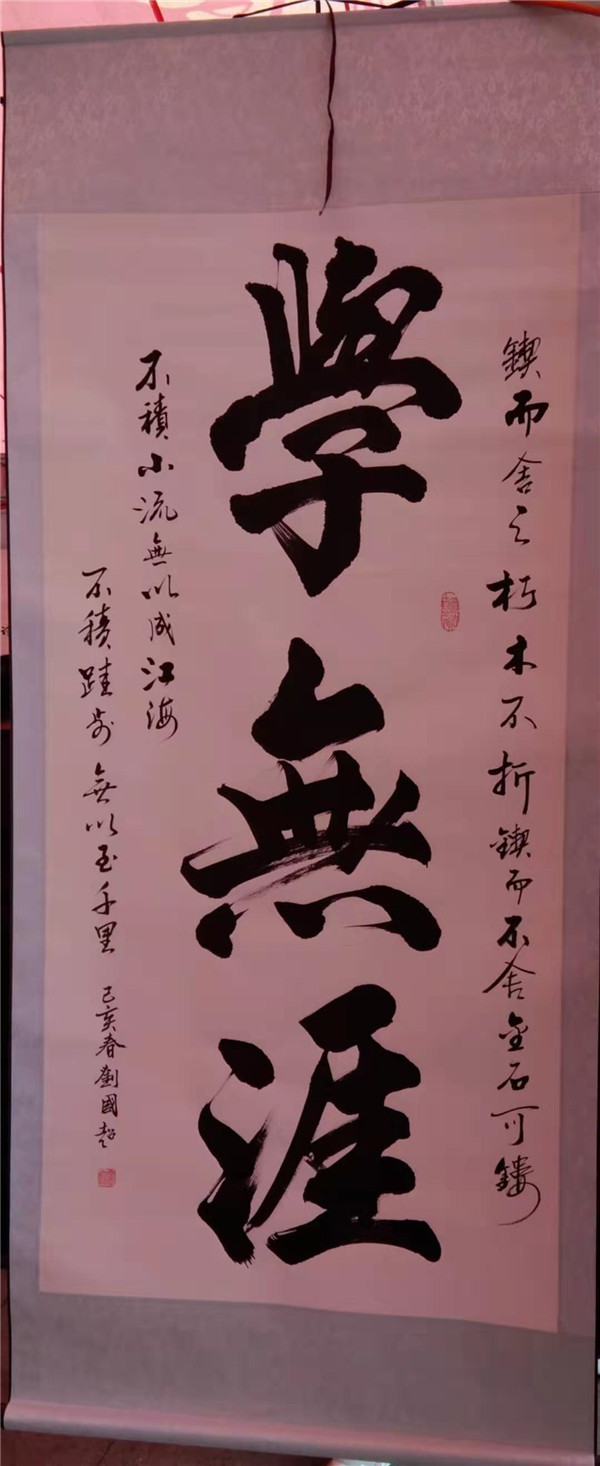 鍥而舍之朽木不折鍥而不舍金石可鏤
學無涯
不積小流無以成江海
不積跬步無以至千里
己亥春劉國超